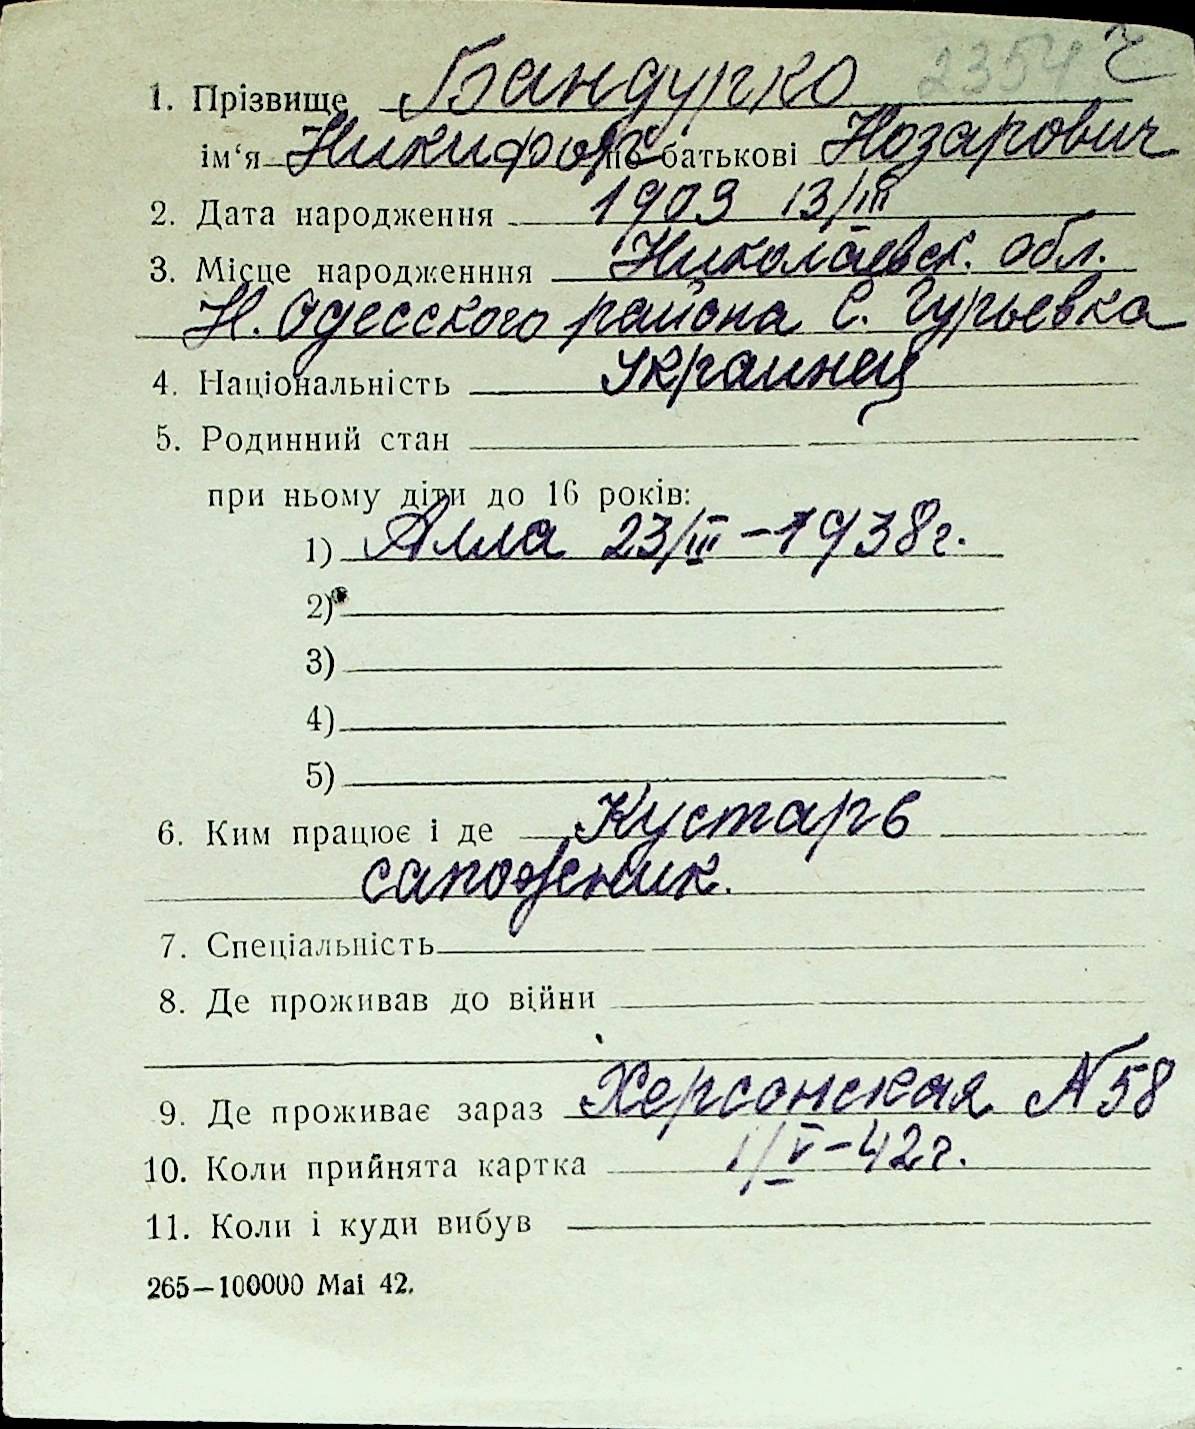 2354 Ч
1. Прізвище Бандурко
ім‘я Никифор по батькові Нозарович
2. Дата народження 1909 13/III
3. Місце народженння Николаевск. обл.
Н. Одесского района С. Гурьевка
4. Національність Украинец
5. Родинний стан
при ньому діти до 16 років:
1) Алла 23/III – 1938г.
2)
3)
4)
5)
6. Ким працює і де Кустарь
сапожник.
7. Спеціальність
8. Де проживав до війни
9. Де проживає зараз Херсонская N 58
10. Коли прийнята картка 1/V – 42г.
11. Коли і куди вибув
265—100000 Mai 42.